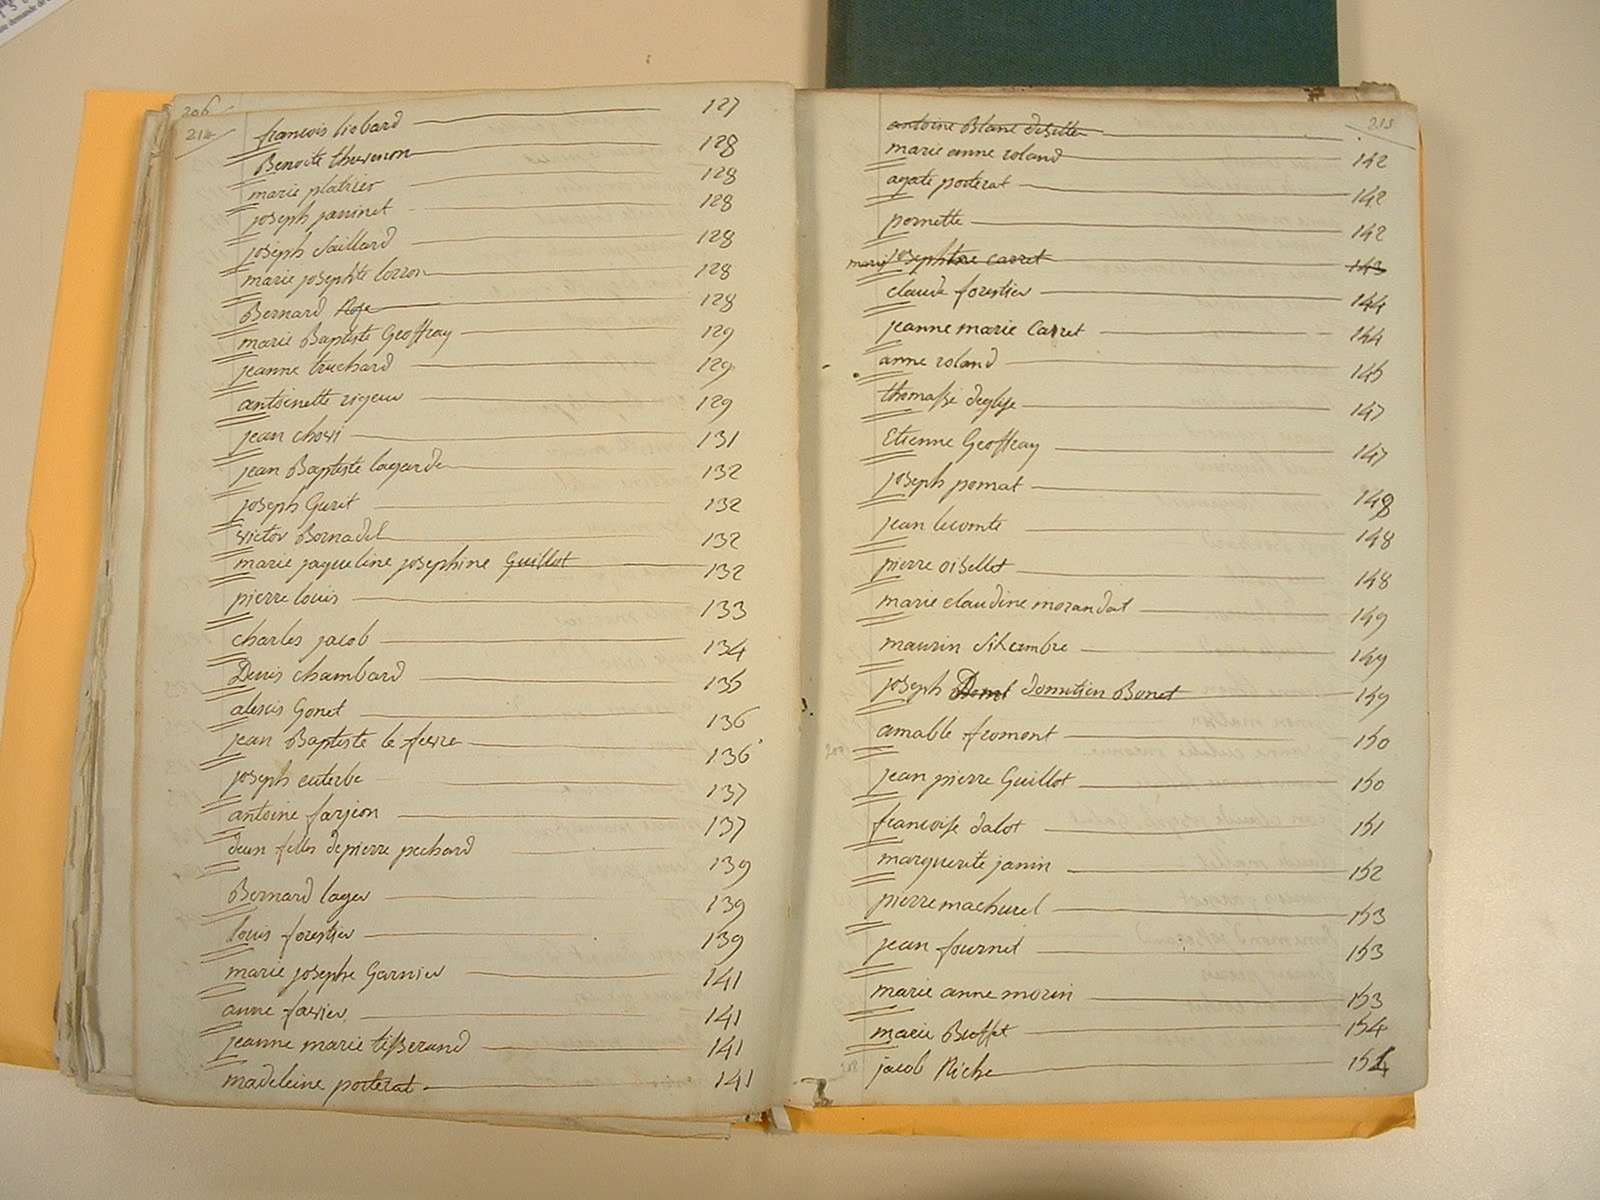 206
214
françois liobard 127
Benoite thevenon 128
marie platrier 128
joseph janinet 128
joseph Saillard 128
marie josephte 128
Bernard Roze 128
marie Baptiste Geoffray 129
jeanne truchard 129
antoinette rigeur 129
jean chovi 131
jean Baptiste lagarde 132
joseph Gurit 132
victor Bornadel 132
marie jaqueline josephine Guillot 132
pierre louis 133
charles jacob 134
Denis chambard 135
alexis Gonet 136
jean Baptiste le fevre 136
joseph euterbe 137
antoine farjion 137
deux filles de pierre pechard 139
Bernard lager 139
louis forestier 139
marie josephe Garnier 141
anne favier 141
jeanne marie tisserand 141
madeleine poterat 141
215
antoine Blanc
marie anne roland 142
agate poterat 142
pernette 142
marie josephine carret 143
claude forestier 144
jeanne marie Carret 144
anne roland 145
thomasse deglise 147
Etienne Geoffray 147
joseph pomat 148
jean lecomte 148
pierre oisellet 148
marie claudine morandat 149
maurin 149
joseph domitien Bonet 149
amable fromont 150
jean pierre Guillot 150
françoise dalot 151
marguerite janin 152
pierre machurel 153
jean fournet 153
marie anne morin 153
marie Buffet 154
jacob Riche 154